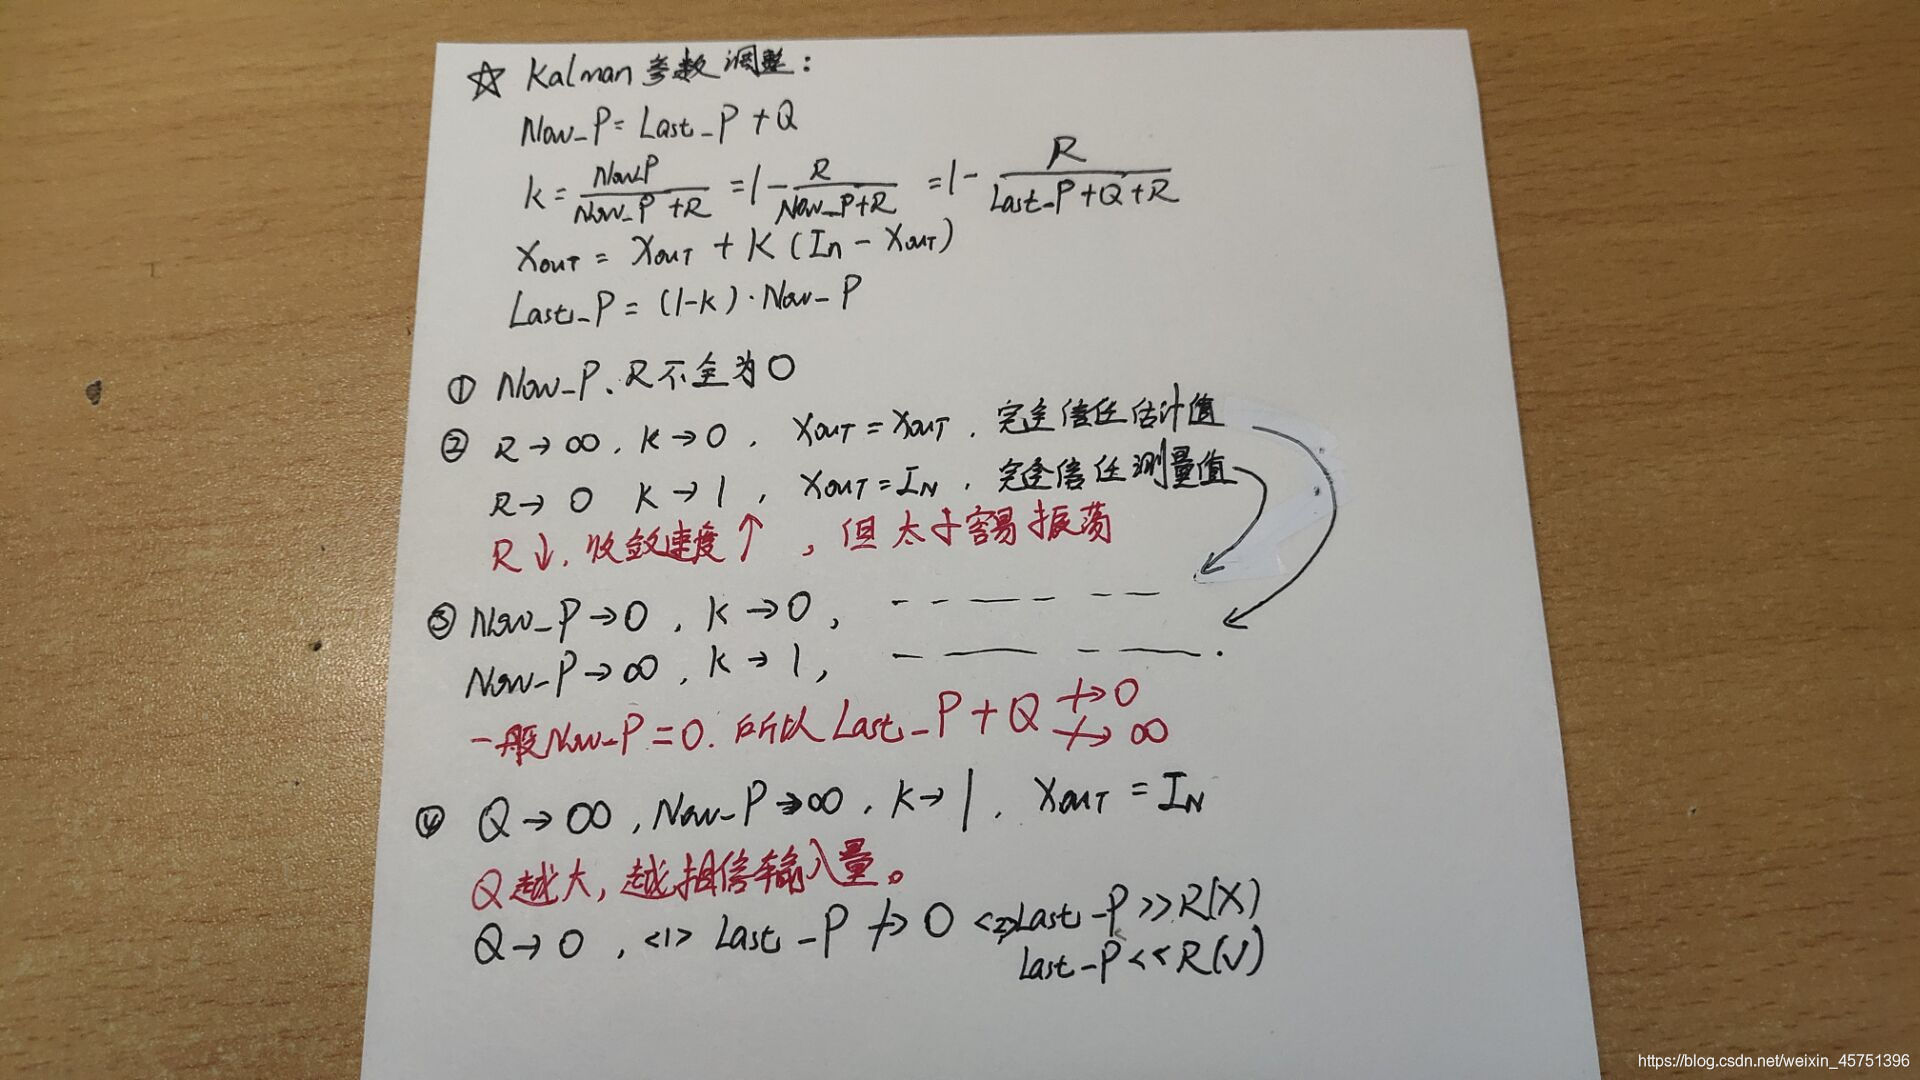 ☆ Kalman 参数调整：
Now_P = Last_P + Q
K = Now_P / (Now_P + R) = 1 - R / (Now_P + R) = 1 - R / (Last_P + Q + R)
XOUT = XOUT + K (In - XOUT)
Last_P = (1-K)·Now_P
① Now_P、R不全为0
② R→∞, K→0, XOUT = XOUT, 完全信任估计值
R→0 K→1, XOUT = IN, 完全信任测量值
R↓, 收敛速度↑, 但太小容易振荡
③ Now_P→0, K→0, -- — --
Now_P→∞, K→1, - — - —.
一般Now_P = 0. 所以 Last_P + Q ↛ 0
↛ ∞
④ Q→∞, Now_P→∞, K→1, XOUT = IN
Q越大, 越相信输入量。
Q→0, <1> Last_P ↛ 0 <2> Last_P >> R(X)
Last_P << R(√)
https://blog.csdn.net/weixin_45751396